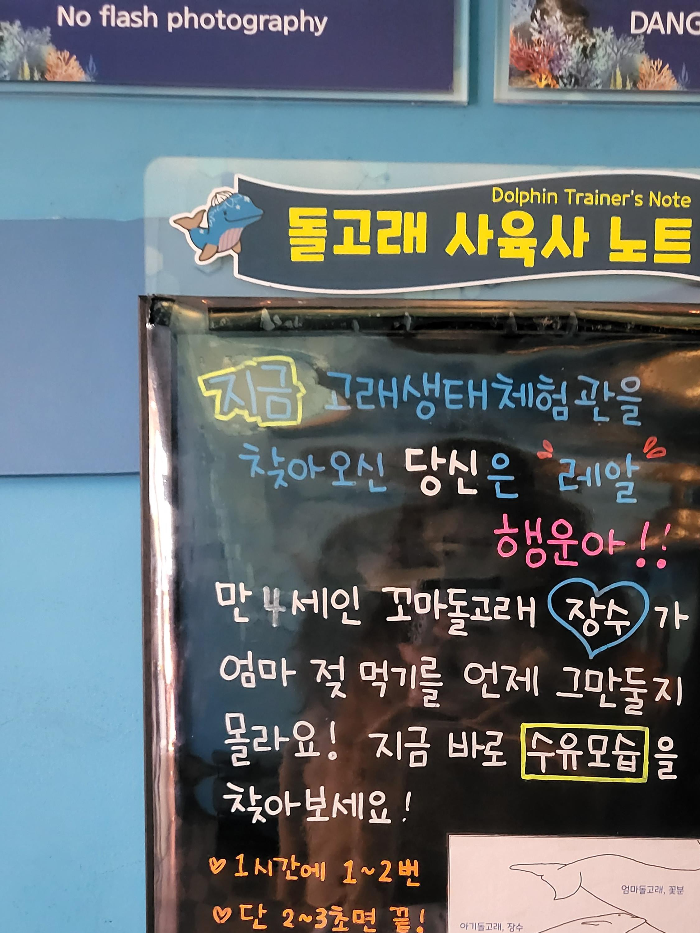 No flash photography
DANG
Dolphin Trainer's Note
돌고래 사육사 노트
지금 고래생태체험관을
찾아오신 당신은 "레알"
행운아!!
만 4세인 꼬마돌고래 장수가
엄마 젖 먹기를 언제 그만둘지
몰라요! 지금 바로 수유모습을
찾아보세요!
♡ 1시간에 1~2번
♡ 단 2~3초면 끝!
엄마돌고래, 꽃분
아기돌고래, 장수